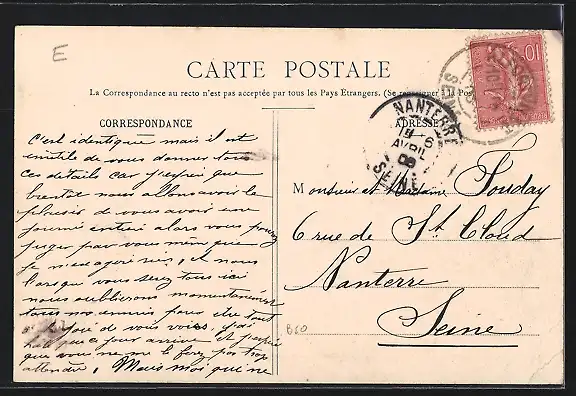 E
CARTE POSTALE
La Correspondance au recto n'est pas acceptée par tous les Pays Etrangers. (Se renseigner à la Poste)
CORRESPONDANCE
ADRESSE
NANTERRE
AVRIL
SEINE
10
c'est identique mais il est
inutile de vous donner tous
ces détails car j'espère que
bientôt nous allons avoir le
plaisir de vous avoir une
journée entière alors vous pourrez
juger par vous même que
je n'exagère rien, et nous
lorsque vous serez tous ici
nous oublierons momentanément
tous nos ennuis pour être tout
à la joie de vous voir. j'ai
hâte que ce jour arrive et j'espère
que vous ne me le ferez pas trop
attendre. Mais moi qui ne
Monsieur et Madame Fouday
6 rue de St Cloud
Nanterre
Seine
B60